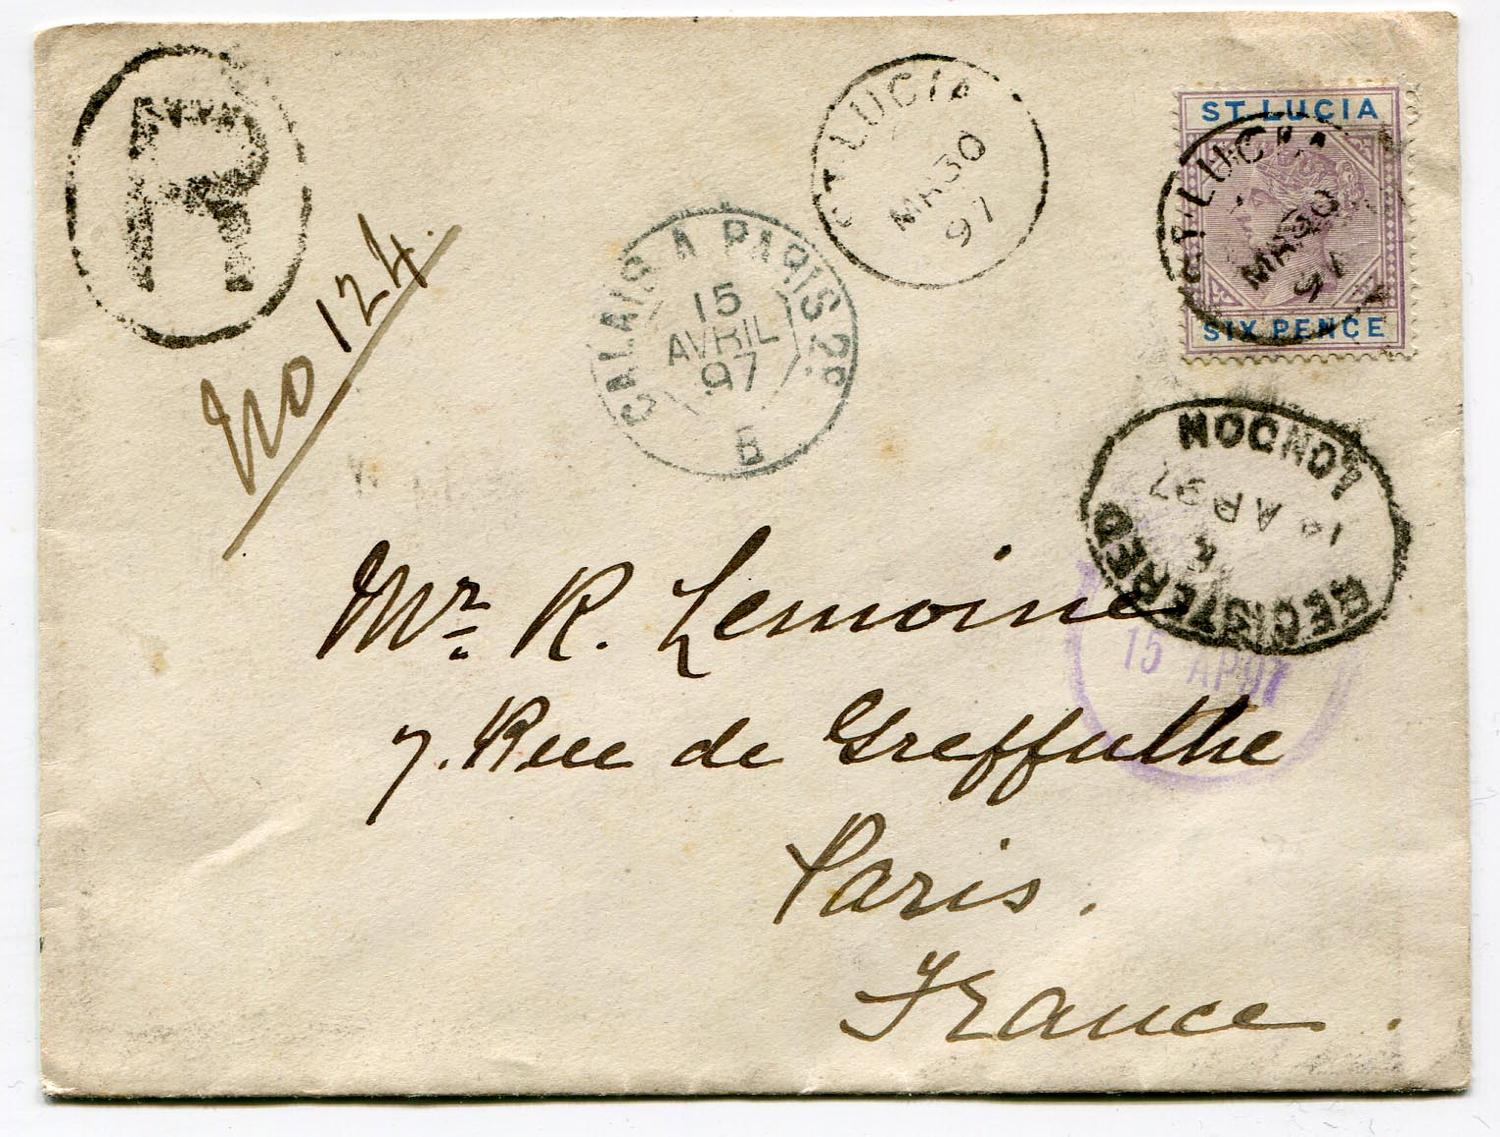 R
No 124.
ST. LUCIA
MR 30
97
ST. LUCIA
SIX PENCE
ST. LUCIA
MR 30
97
CALAIS A PARIS 2º
15
AVRIL
97
B
LONDON
AP 97
REGISTERED
15 AP 97
Mr. R. Lemoine
7. Rue de Greffulhe
Paris.
France.